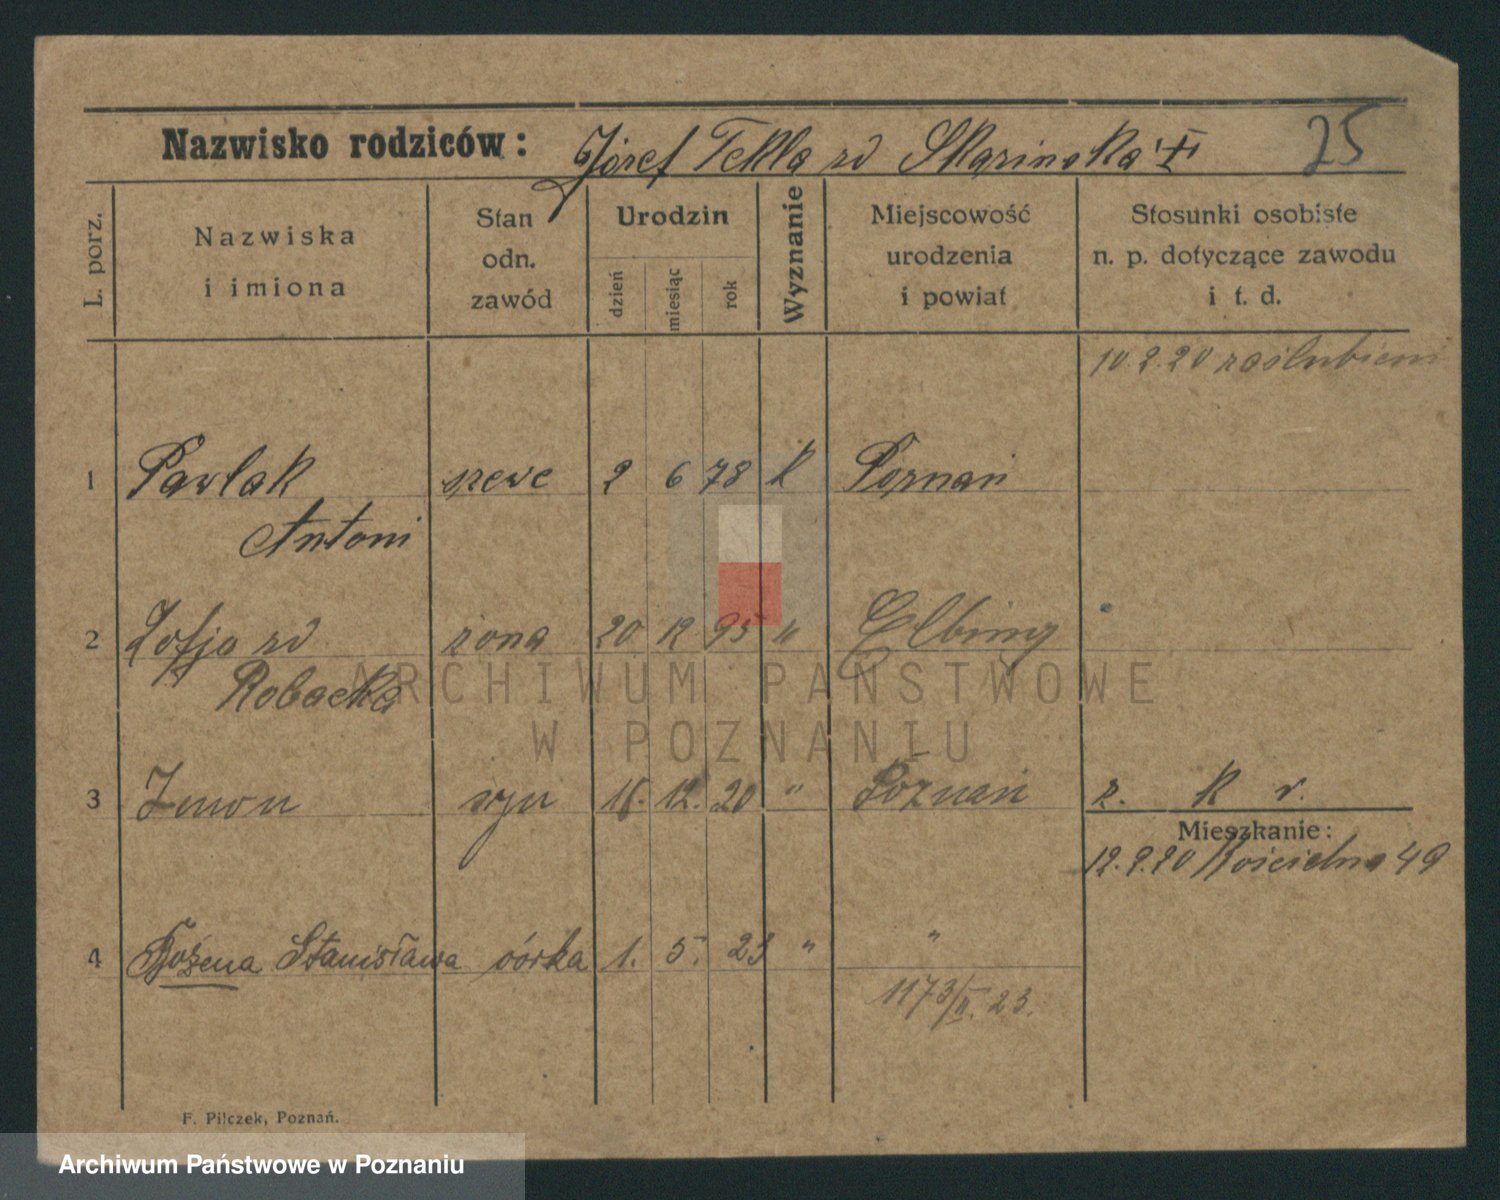 Nazwisko rodziców: Józef Tekla zd Skąrinska 25
L. porz.
Nazwiska
i imiona
Stan
odn.
zawód
Urodzin
dzień
miesiąc
rok
Wyznanie
Miejscowość
urodzenia
i powiat
Stosunki osobiste
n. p. dotyczące zawodu
i t. d.
10.2.20 zaślubieni
1 Pawlak szewc 2 6 78 k Poznań
Antoni
2 Zofja zd żona 20 12 95 " Elbing
Robacka
3 Zenon syn 16. 12. 20 " Poznań r. k v.
Mieszkanie:
12.2.20 Kościelna 49
4 Bożena Stanisława córka 1. 5. 23 " "
1173/II. 23.
F. Pilczek, Poznań.
ARCHIWUM PAŃSTWOWE
W POZNANIU
Archiwum Państwowe w Poznaniu